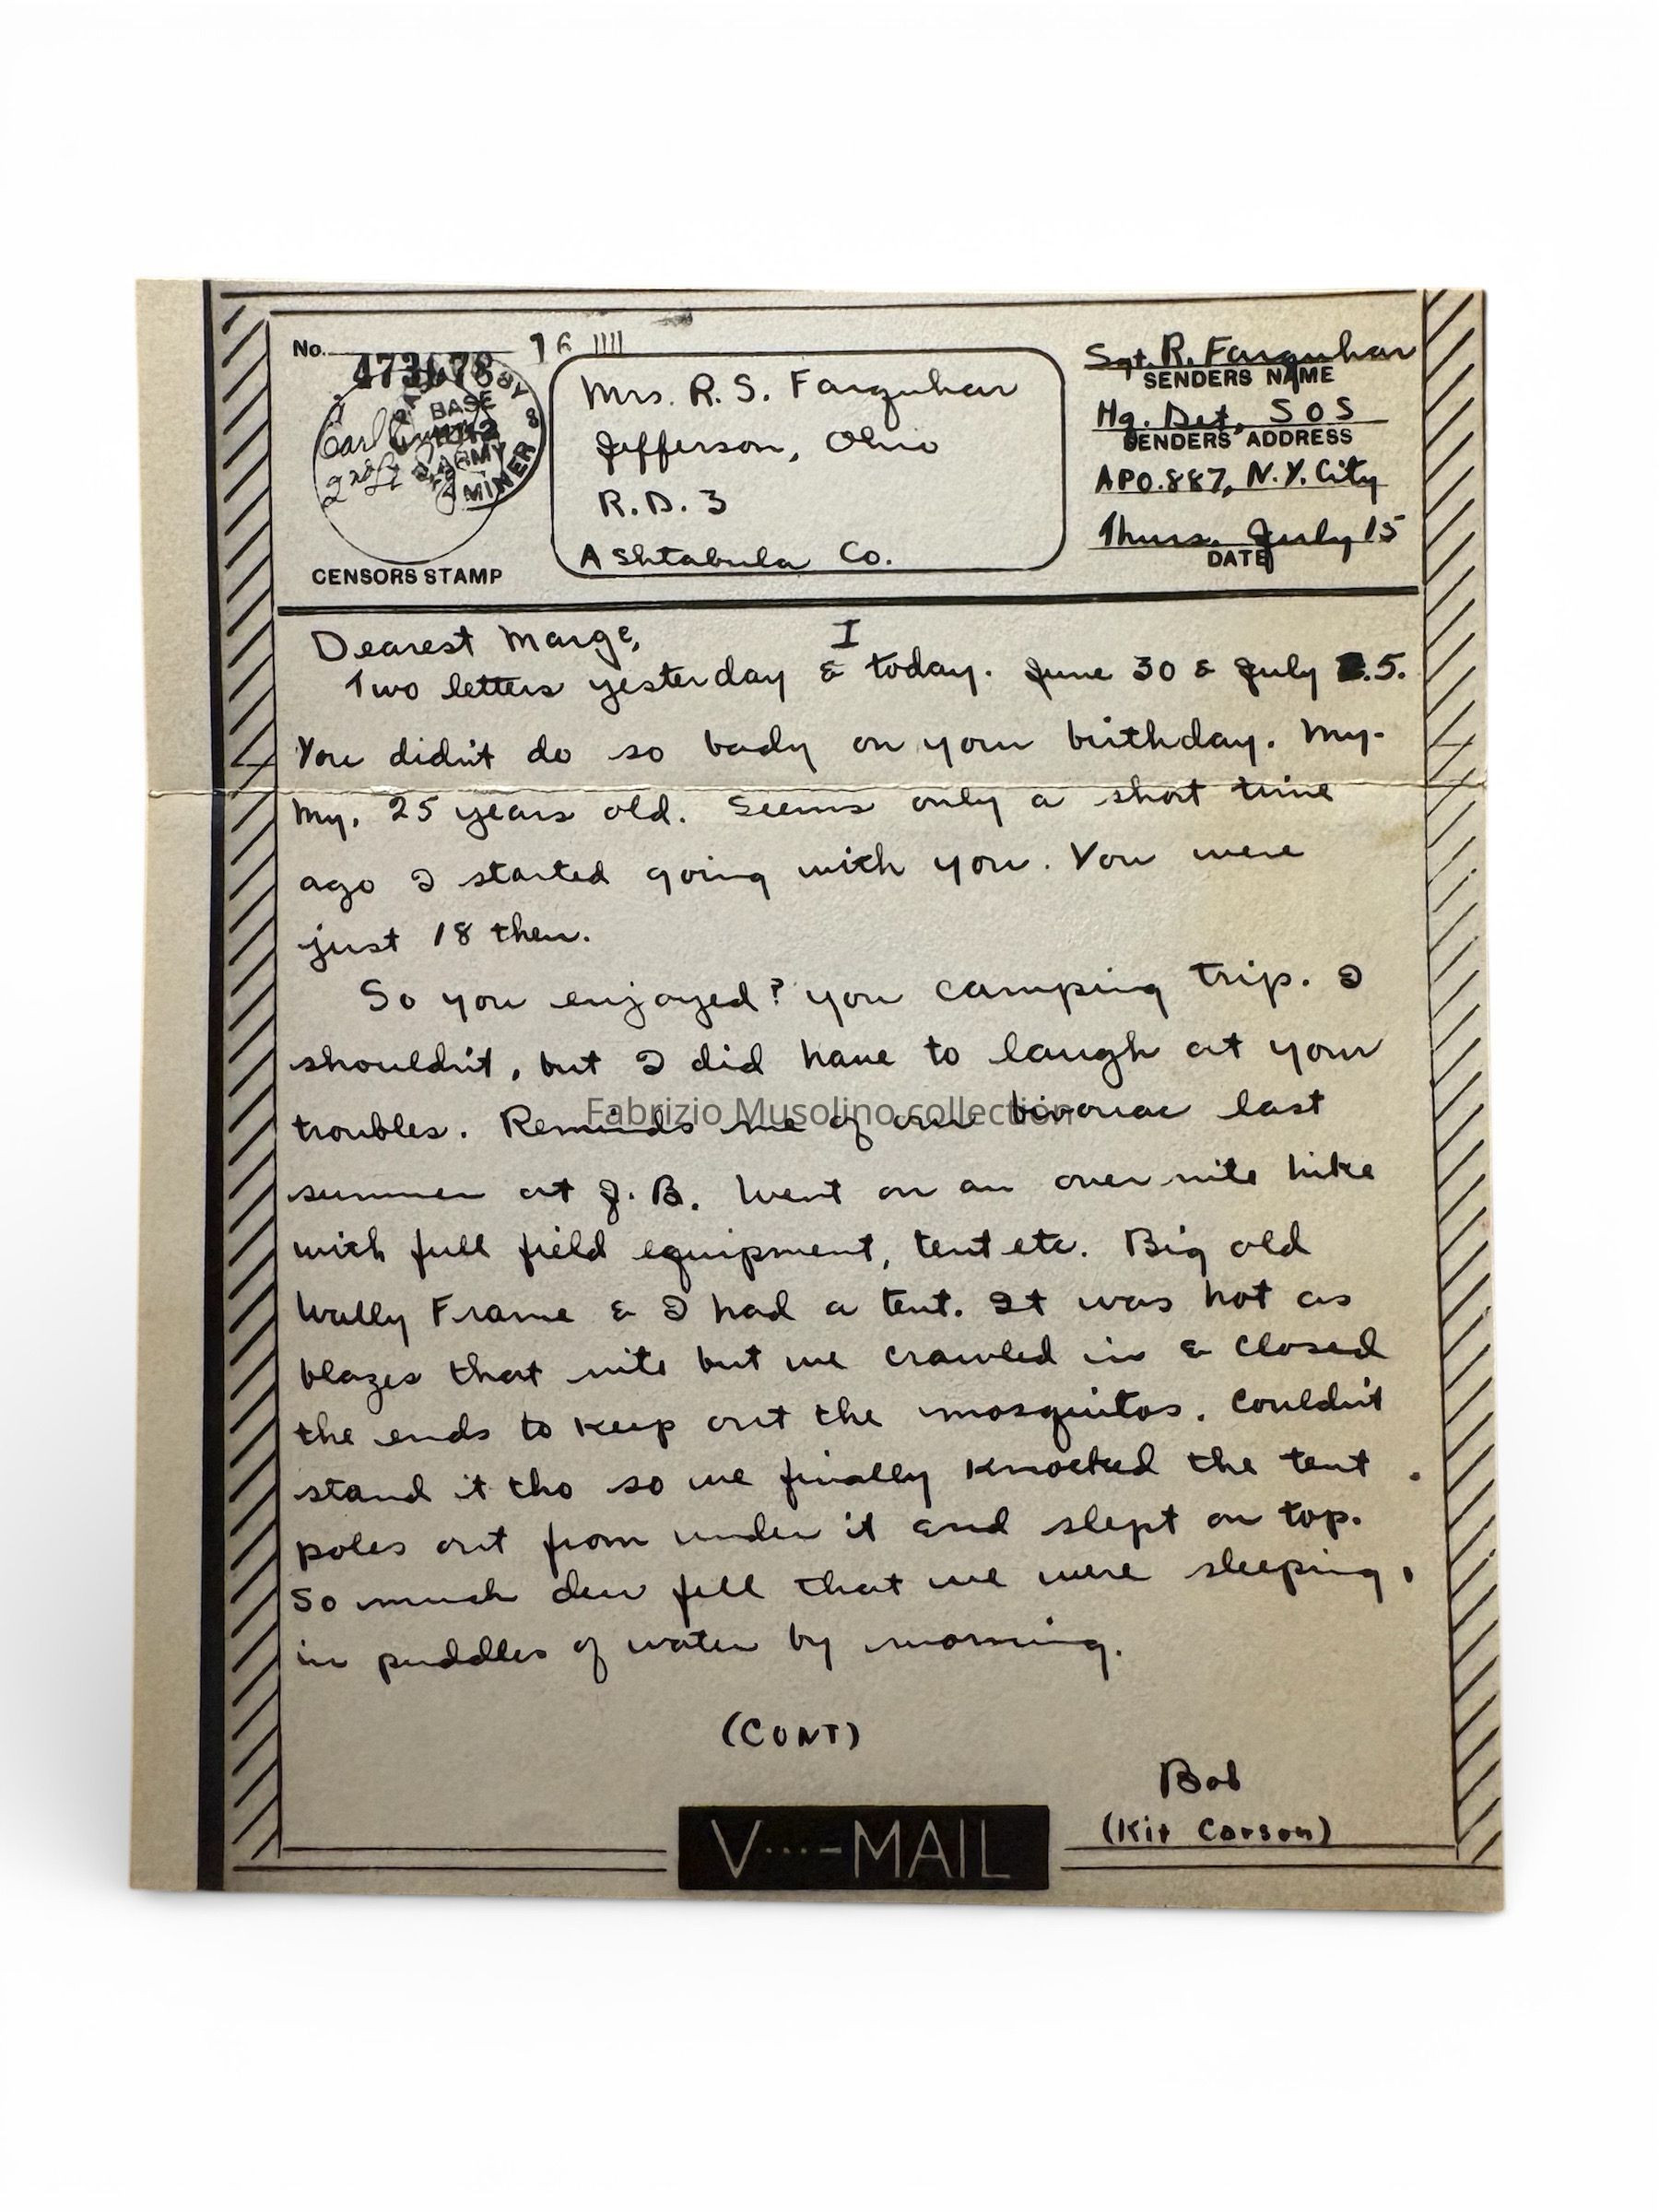 No. 473678 16
PASSED BY
BASE
1142
ARMY
EXAMINER
CENSORS STAMP
Mrs. R. S. Farquhar
Jefferson, Ohio
R.D. 3
Ashtabula Co.
Sgt. R. Farquhar
SENDERS NAME
Hq. Det, SOS
SENDERS ADDRESS
APO.887, N.Y. City
Thurs. July 15
DATE
Dearest Marge, I
Two letters yesterday & today. June 30 & July 5.
You didn't do so bady on your birthday. My-
my, 25 years old. Seems only a short time
ago I started going with you. You were
just 18 then.
So you enjoyed? you camping trip. I
shouldn't, but I did have to laugh at your
troubles. Reminds me of our bivouac last
Fabrizio Musolino collection
summer at J. B. Went on an over nite hike
with full field equipment, tent etc. Big old
Wally Frame & I had a tent. It was hot as
blazes that nite but we crawled in & closed
the ends to keep out the mosquitos. Couldn't
stand it tho so we finally knocked the tent
poles out from under it and slept on top.
So much dew fell that we were sleeping
in puddles of water by morning.
(CONT)
Bob
(Kit Carson)
V...-MAIL